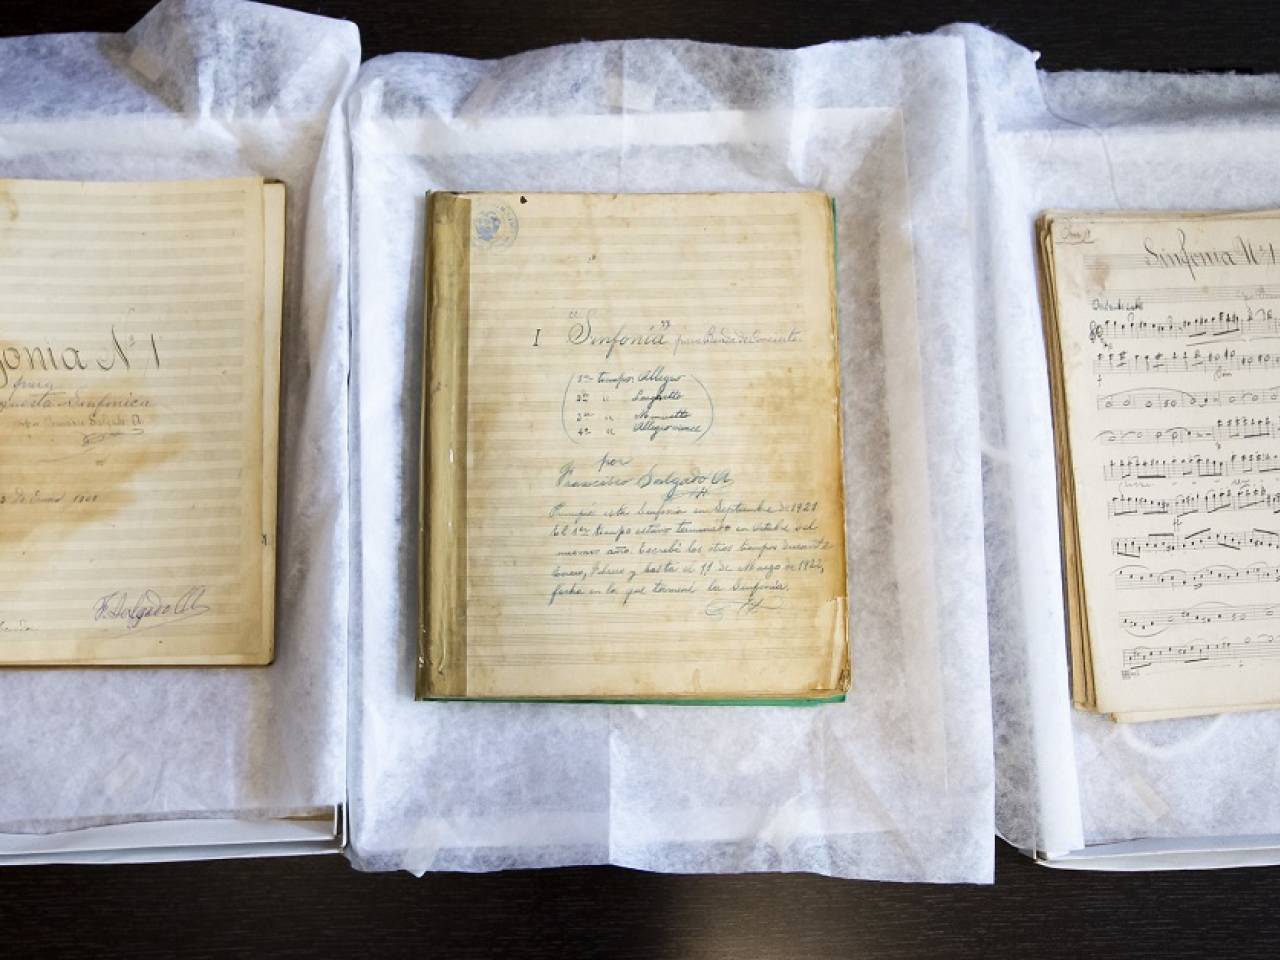 onia Nº 1
para
uesta Sinfónica
Salgado A.
de Enero
F. Salgado A.
I "Sinfonía" para Banda de Concierto.
1er tiempo: Allegro
2do " Larghetto
3er " Menuetto
4to " Allegro vivace
por
Francisco Salgado A.
Principié esta Sinfonía en Septiembre de 1921
El 1er tiempo estuvo terminado en Octubre del
mismo año. Escribí los otros tiempos durante
Enero, Febrero y hasta el 11 de Marzo de 1922,
fecha en la que terminé la Sinfonía.
Sinfonía Nº 1